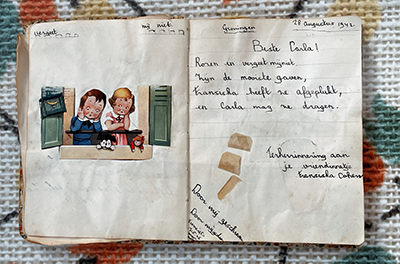 vergeet mij niet.
Groningen 28 augustus 1942.
Beste Carla!
Rozen en vergeet mij niet.
Zijn de mooiste gaven,
Fransiska heeft ze afgeplukt,
en Carla mag ze dragen.
Ter herinnering aan
je vriendinnetje
Fransiska Cohen
Door mij